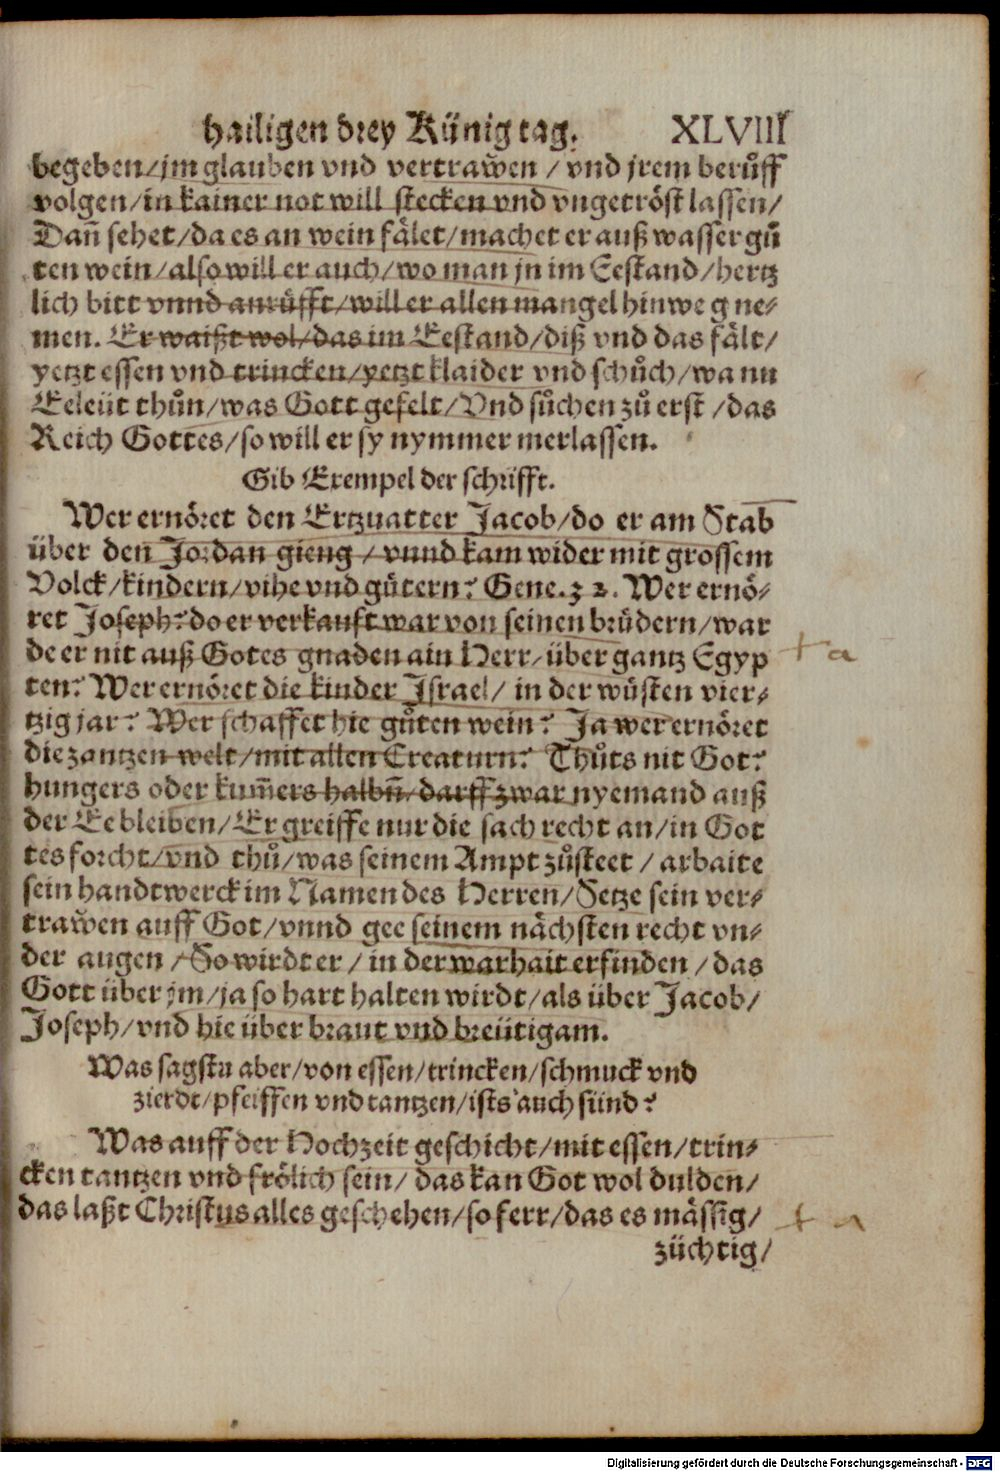 hailigen drey Künig tag. XLVIII
begeben/jm glauben vnd vertrawen / vnd jrem berůff
volgen/in kainer not will stecken vnd vngetröst lassen/
Dañ sehet/da es an wein fälet/machet er auß wasser gů
ten wein/also will er auch/wo man jn im Eestand/hertz
lich bitt vnnd anrüfft/will er allen mangel hinweg ne⸗
men. Er waißt wol/das im Eestand/diß vnd das fält/
yetzt essen vnd trincken/yetzt klaider vnd schůch/wa nu
Eeleüt thůn/was Gott gefelt/Vnd sůchen zů erst /das
Reich Gottes/so will er sy nymmer merlassen.
Gib Exempel der schrifft.
Wer ernöret den Ertzuatter Jacob/do er am Stab
über den Jordan gieng / vnnd kam wider mit grossem
Volck/kindern/vihe vnd gütern? Gene.32. Wer ernö⸗
ret Joseph?do er verkauft war von seinen brüdern/war
de er nit auß Gotes gnaden ain Herr/über gantz Egyp
ten? Wer ernöret die kinder Israel/ in der wüsten vier⸗
tzig jar? Wer schaffet hie gůten wein? Ja wer ernöret
die gantzen welt/mit allen Creaturn? Thůts nit Got?
hungers oder kum̃ers halbñ/darff zwar nyemand auß
der Ee bleiben/Er greiffe nur die sach recht an/in Got
tes forcht/vnd thů/was seinem Ampt zůsteet / arbaite
sein handtwerck im Namen des Herren/Setze sein ver⸗
trawen auff Got/vnnd gee seinem nächsten recht vn⸗
der augen /So wirdt er / in der warhait erfinden /das
Gott über jm/ja so hart halten wirdt/als über Jacob/
Joseph/vnd hie über braut vnd breütigam.
Was sagstu aber/von essen/trincken/schmuck vnd
zierdt/pfeiffen vnd tantzen/ists auch sünd?
Was auff der Hochzeit geschicht/mit essen/trin⸗
cken tantzen vnd frölich sein/ das kan Got wol dulden/
das laßt Christus alles geschehen/so ferr/das es mässig/
züchtig/
Digitalisierung gefördert durch die Deutsche Forschungsgemeinschaft - DFG